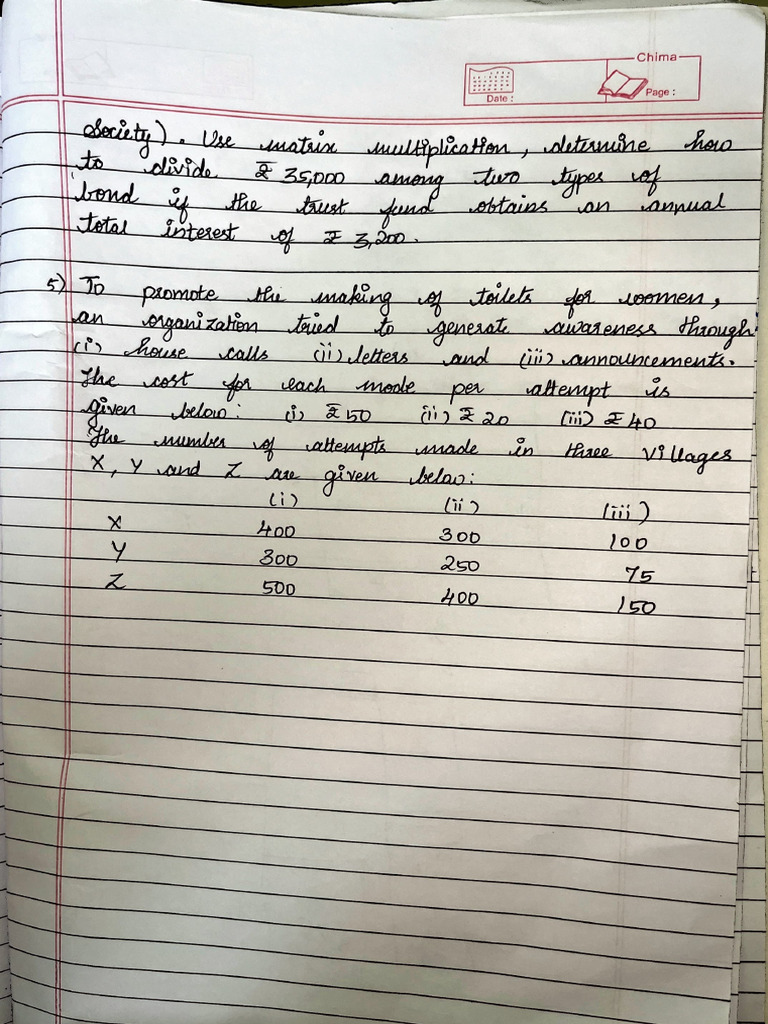 Chima
Date :
Page :
society). Use matrix multiplication, determine how
to divide ₹ 35,000 among two types of
bond if the trust fund obtains an annual
total interest of ₹ 3,200.
5) To promote the making of toilets for women,
an organization tried to generate awareness through
(i) house calls (ii) letters and (iii) announcements.
The cost for each mode per attempt is
given below: (i) ₹ 50 (ii) ₹ 20 (iii) ₹ 40
The number of attempts made in three villages
X, Y and Z are given below:
(i) (ii) (iii)
X 400 300 100
Y 300 250 75
Z 500 400 150